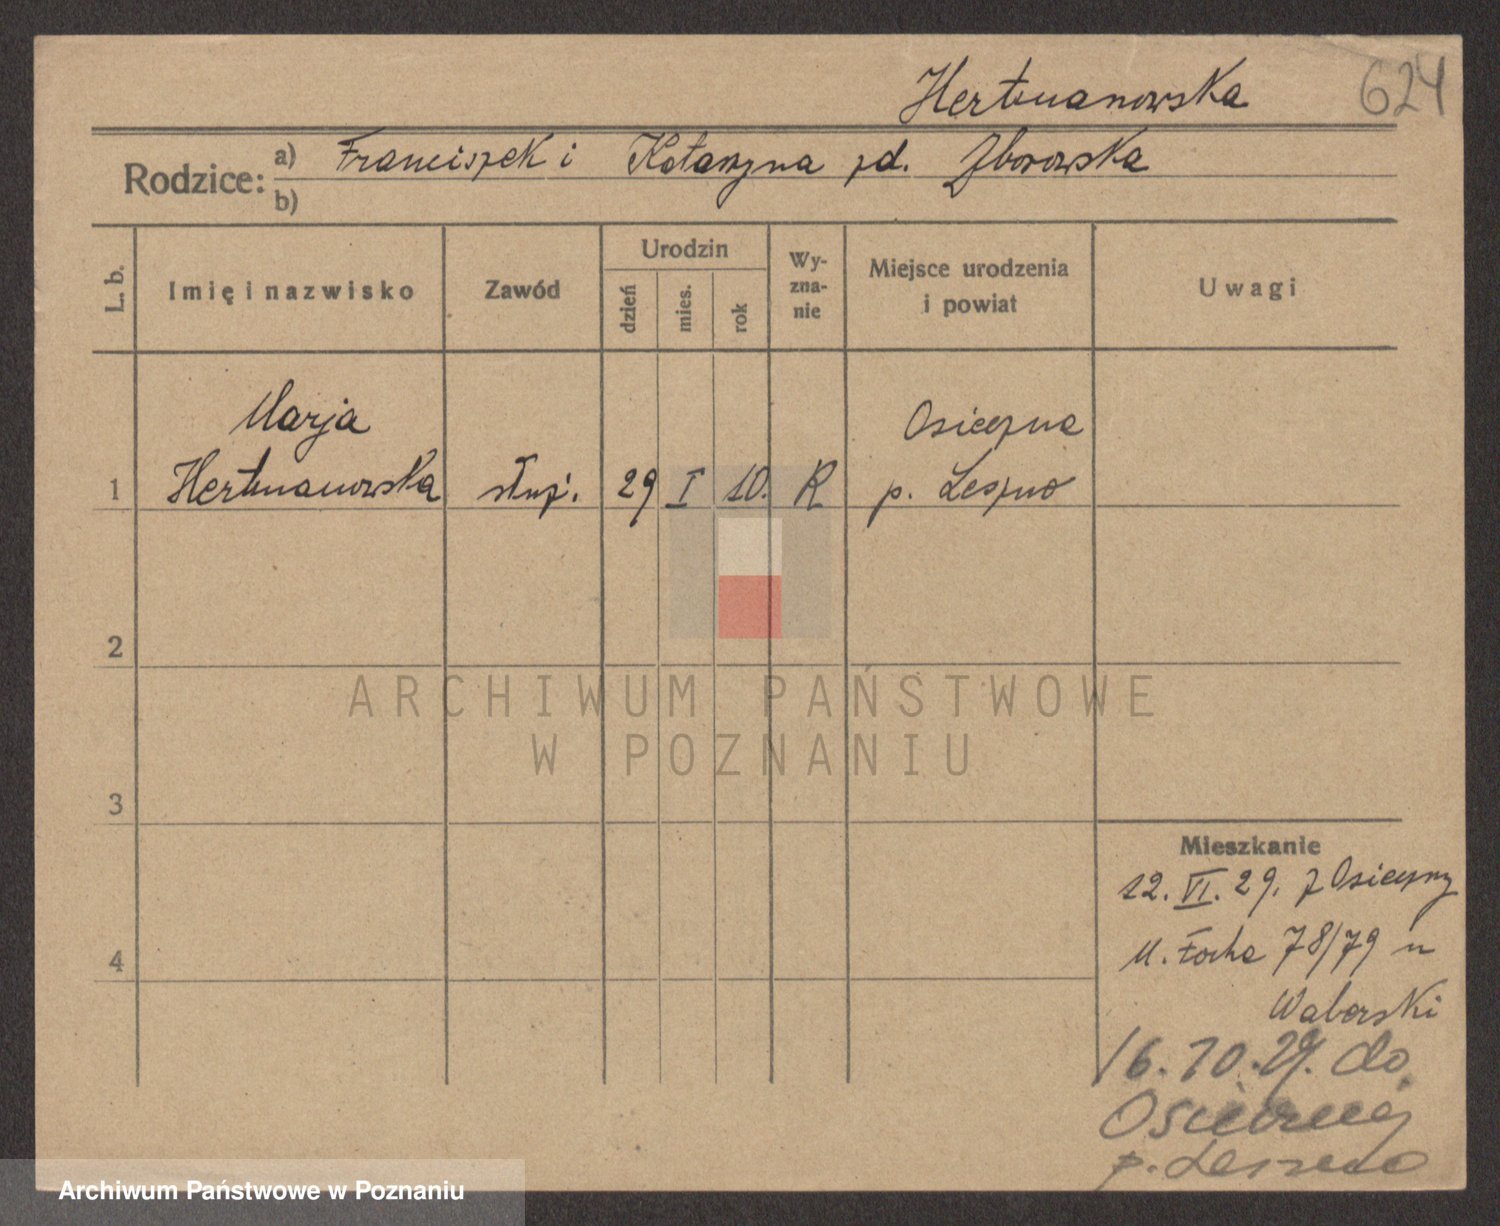 Hertmanowska 624
Rodzice: a) Franciszek i Katarzyna zd. Zborowska
b)
L. b. Imię i nazwisko Zawód Urodzin dzień mies. rok Wyznanie Miejsce urodzenia i powiat Uwagi
Marja Osieczna
1 Hertmanowska służ. 29 I 10. R p. Leszno
2
ARCHIWUM PAŃSTWOWE
W POZNANIU
3
Mieszkanie
12. VI. 29. z Osieczny
M. Focha 78/79 u
4
Waberski
16.10.29. do
Osiecznej
p. Leszno
Archiwum Państwowe w Poznaniu